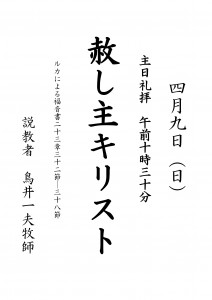 四月九日（日）
主日礼拝　午前十時三十分
赦し主キリスト
ルカによる福音書二十三章三十二節―三十八節
説教者　鳥井一夫牧師